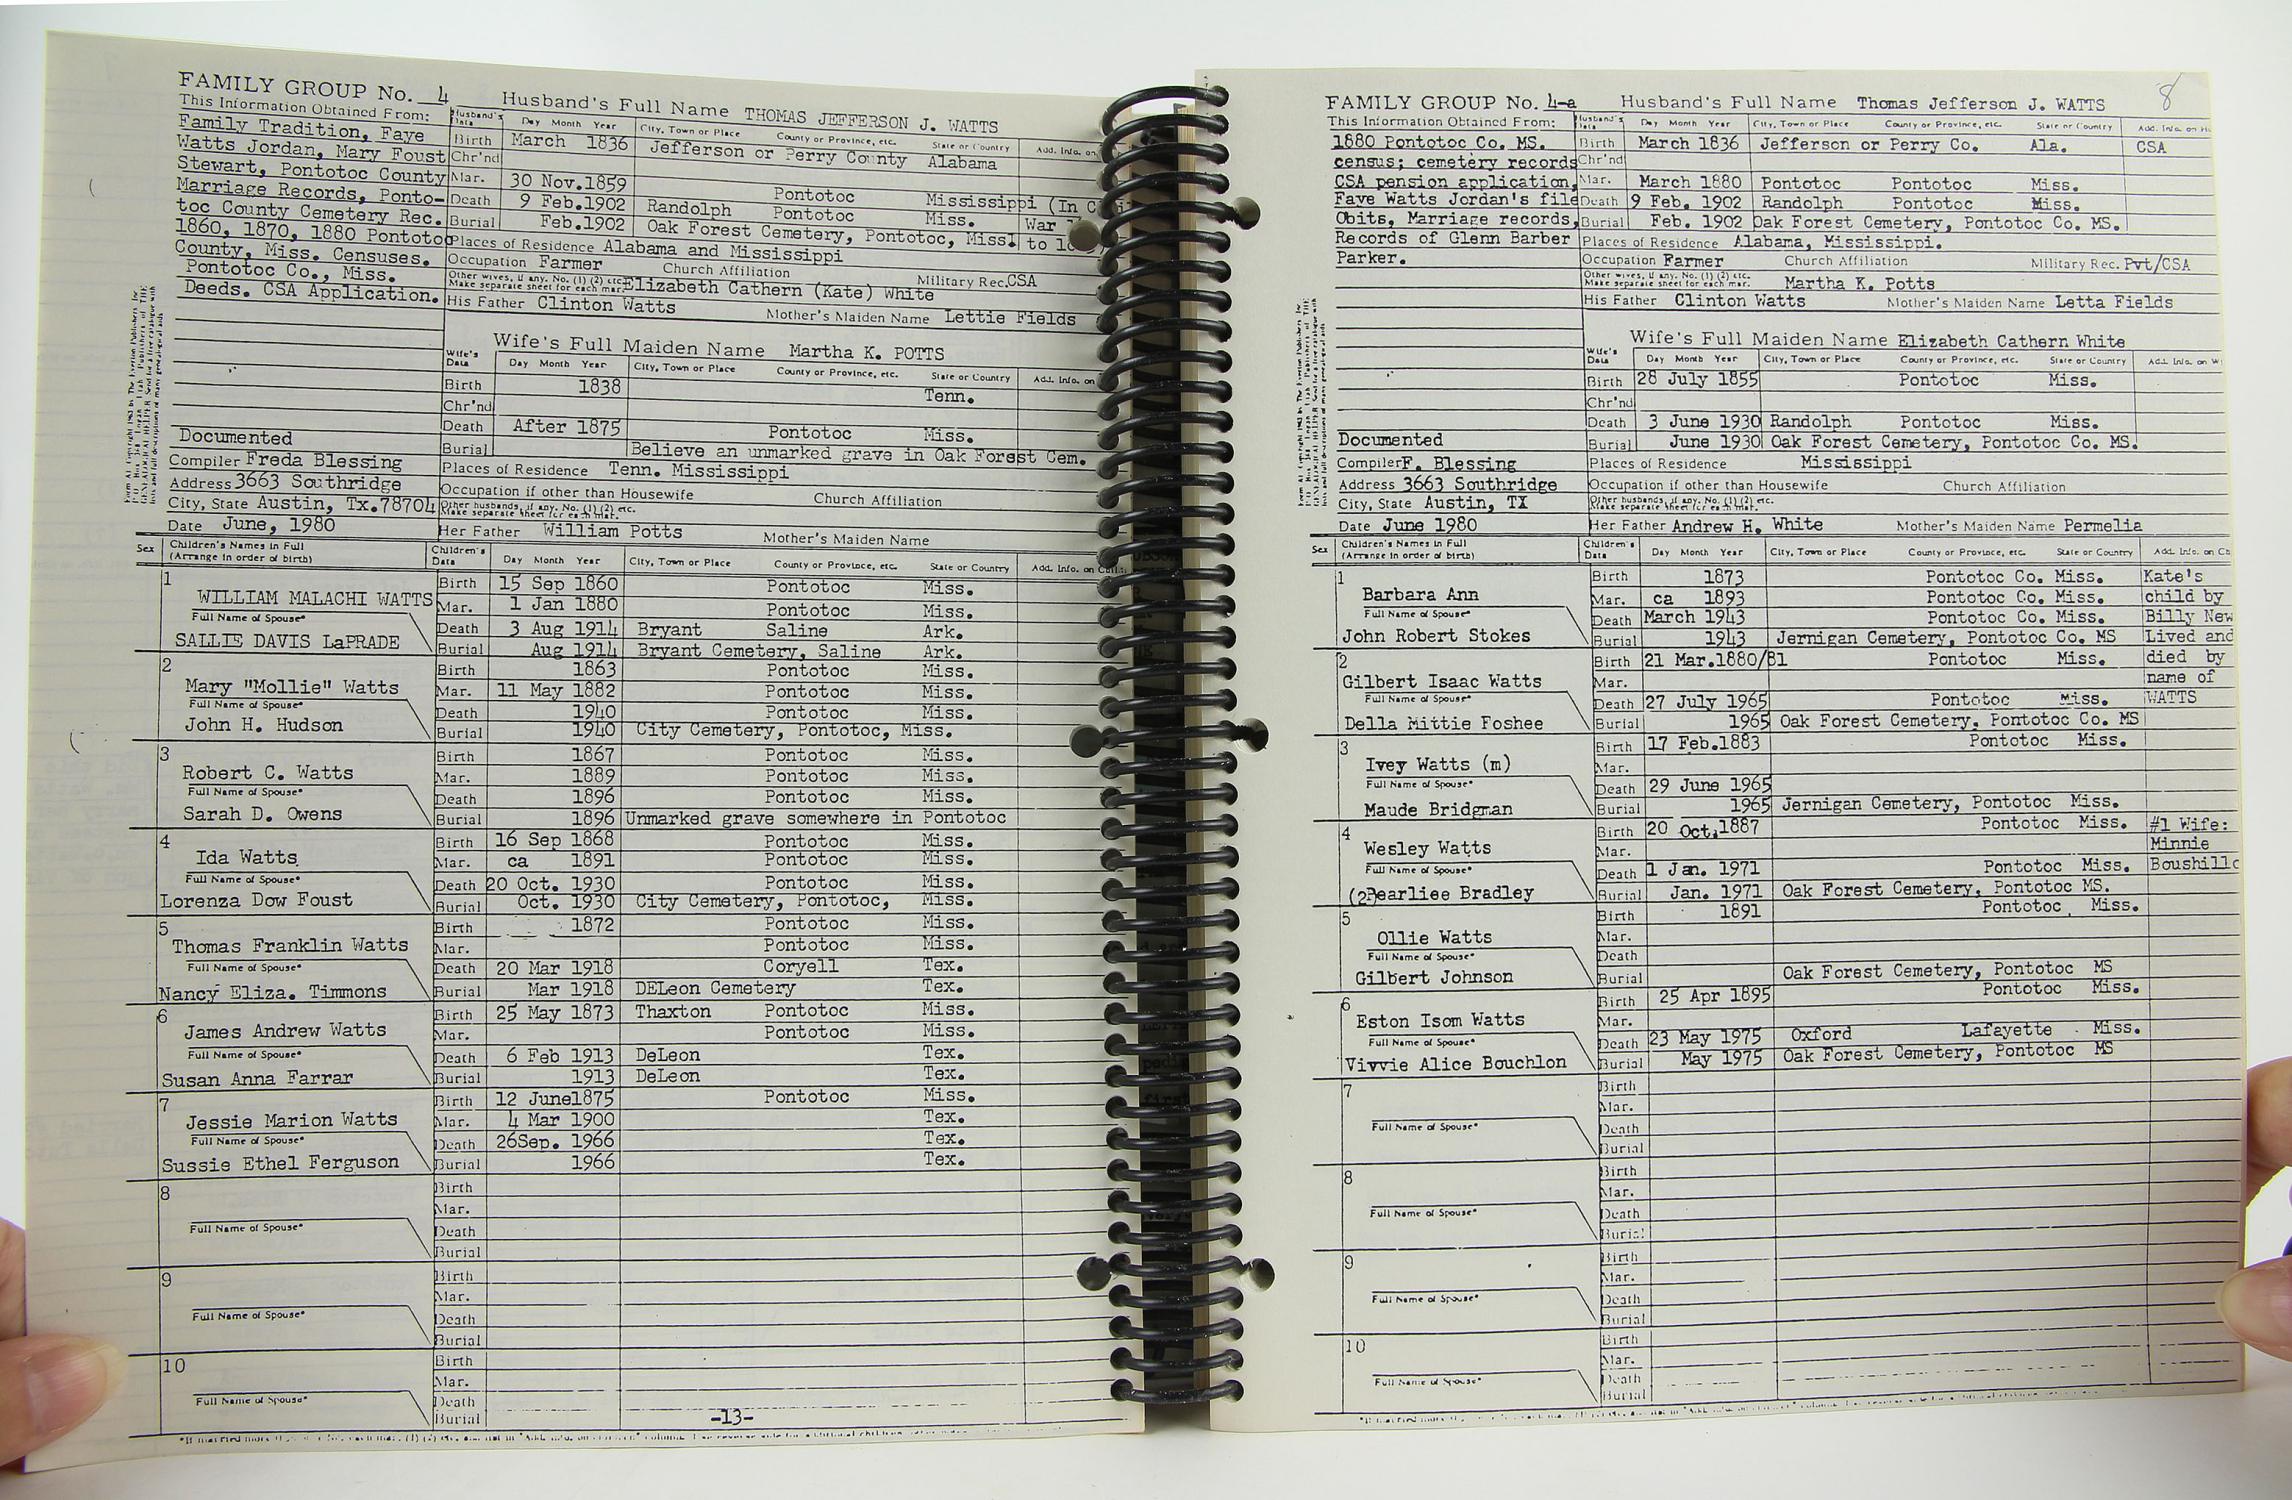 FAMILY GROUP No. 4
This Information Obtained From:
Family Tradition, Faye
Watts Jordan, Mary Foust
Stewart, Pontotoc County
Marriage Records, Ponto-
toc County Cemetery Rec.
1860, 1870, 1880 Pontotoc
County, Miss. Censuses.
Pontotoc Co., Miss.
Deeds. CSA Application.
Documented
Compiler Freda Blessing
Address 3663 Southridge
City, State Austin, Tx.78704
Date June, 1980
Husband's Full Name THOMAS JEFFERSON J. WATTS
Husband's Data Day Month Year City, Town or Place County or Province, etc. State or Country Add. Info. on
Birth March 1836 Jefferson or Perry County Alabama
Chr'nd
Mar. 30 Nov.1859 Pontotoc Mississippi (In
Death 9 Feb.1902 Randolph Pontotoc Miss. War
Burial Feb.1902 Oak Forest Cemetery, Pontotoc, Miss. to
Places of Residence Alabama and Mississippi
Occupation Farmer Church Affiliation Military Rec. CSA
Other wives, if any. No. (1) (2) etc. Make separate sheet for each mar. Elizabeth Cathern (Kate) White
His Father Clinton Watts Mother's Maiden Name Lettie Fields
Wife's Full Maiden Name Martha K. POTTS
Wife's Data Day Month Year City, Town or Place County or Province, etc. State or Country Add. Info. on
Birth 1838 Tenn.
Chr'nd
Death After 1875 Pontotoc Miss.
Burial Believe an unmarked grave in Oak Forest Cem.
Places of Residence Tenn. Mississippi
Occupation if other than Housewife Church Affiliation
Other husbands, if any. No. (1) (2) etc. Make separate sheet for each mar.
Her Father William Potts Mother's Maiden Name
Sex Children's Names in Full (Arrange in order of birth) Children's Data Day Month Year City, Town or Place County or Province, etc. State or Country Add. Info. on
1 WILLIAM MALACHI WATTS
Full Name of Spouse*
SALLIE DAVIS LaPRADE
Birth 15 Sep 1860 Pontotoc Miss.
Mar. 1 Jan 1880 Pontotoc Miss.
Death 3 Aug 1914 Bryant Saline Ark.
Burial Aug 1914 Bryant Cemetery, Saline Ark.
2 Mary "Mollie" Watts
Full Name of Spouse*
John H. Hudson
Birth 1863 Pontotoc Miss.
Mar. 11 May 1882 Pontotoc Miss.
Death 1940 Pontotoc Miss.
Burial 1940 City Cemetery, Pontotoc, Miss.
3 Robert C. Watts
Full Name of Spouse*
Sarah D. Owens
Birth 1867 Pontotoc Miss.
Mar. 1889 Pontotoc Miss.
Death 1896 Pontotoc Miss.
Burial 1896 Unmarked grave somewhere in Pontotoc
4 Ida Watts
Full Name of Spouse*
Lorenza Dow Foust
Birth 16 Sep 1868 Pontotoc Miss.
Mar. ca 1891 Pontotoc Miss.
Death 20 Oct. 1930 Pontotoc Miss.
Burial Oct. 1930 City Cemetery, Pontotoc, Miss.
5 Thomas Franklin Watts
Full Name of Spouse*
Nancy Eliza. Timmons
Birth 1872 Pontotoc Miss.
Mar. Pontotoc Miss.
Death 20 Mar 1918 Coryell Tex.
Burial Mar 1918 DELeon Cemetery Tex.
6 James Andrew Watts
Full Name of Spouse*
Susan Anna Farrar
Birth 25 May 1873 Thaxton Pontotoc Miss.
Mar. Pontotoc Miss.
Death 6 Feb 1913 DeLeon Tex.
Burial 1913 DeLeon Tex.
7 Jessie Marion Watts
Full Name of Spouse*
Sussie Ethel Ferguson
Birth 12 June1875 Pontotoc Miss.
Mar. 4 Mar 1900 Tex.
Death 26Sep. 1966 Tex.
Burial 1966 Tex.
8
Full Name of Spouse*
Birth
Mar.
Death
Burial
9
Full Name of Spouse*
Birth
Mar.
Death
Burial
10
Full Name of Spouse*
Birth
Mar.
Death
Burial
-13-
8
FAMILY GROUP No. 4-a
This Information Obtained From:
1880 Pontotoc Co. MS.
census; cemetery records
CSA pension application,
Faye Watts Jordan's file
Obits, Marriage records,
Records of Glenn Barber
Parker.
Documented
Compiler F. Blessing
Address 3663 Southridge
City, State Austin, TX
Date June 1980
Husband's Full Name Thomas Jefferson J. WATTS
Husband's Data Day Month Year City, Town or Place County or Province, etc. State or Country Add. Info. on
Birth March 1836 Jefferson or Perry Co. Ala. CSA
Chr'nd
Mar. March 1880 Pontotoc Pontotoc Miss.
Death 9 Feb. 1902 Randolph Pontotoc Miss.
Burial Feb. 1902 Oak Forest Cemetery, Pontotoc Co. MS.
Places of Residence Alabama, Mississippi.
Occupation Farmer Church Affiliation Military Rec. Pvt/CSA
Other wives, if any. No. (1) (2) etc. Make separate sheet for each mar. Martha K. Potts
His Father Clinton Watts Mother's Maiden Name Letta Fields
Wife's Full Maiden Name Elizabeth Cathern White
Wife's Data Day Month Year City, Town or Place County or Province, etc. State or Country Add. Info. on
Birth 28 July 1855 Pontotoc Miss.
Chr'nd
Death 3 June 1930 Randolph Pontotoc Miss.
Burial June 1930 Oak Forest Cemetery, Pontotoc Co. MS.
Places of Residence Mississippi
Occupation if other than Housewife Church Affiliation
Other husbands, if any. No. (1) (2) etc. Make separate sheet for each mar.
Her Father Andrew H. White Mother's Maiden Name Permelia
Sex Children's Names in Full (Arrange in order of birth) Children's Data Day Month Year City, Town or Place County or Province, etc. State or Country Add. Info. on Ch
1 Barbara Ann
Full Name of Spouse*
John Robert Stokes
Birth 1873 Pontotoc Co. Miss. Kate's
Mar. ca 1893 Pontotoc Co. Miss. child by
Death March 1943 Pontotoc Co. Miss. Billy New
Burial 1943 Jernigan Cemetery, Pontotoc Co. MS Lived and
2 Gilbert Isaac Watts
Full Name of Spouse*
Della Mittie Foshee
Birth 21 Mar.1880/81 Pontotoc Miss. died by
Mar. name of
Death 27 July 1965 Pontotoc Miss. WATTS
Burial 1965 Oak Forest Cemetery, Pontotoc Co. MS
3 Ivey Watts (m)
Full Name of Spouse*
Maude Bridgman
Birth 17 Feb.1883 Pontotoc Miss.
Mar.
Death 29 June 1965
Burial 1965 Jernigan Cemetery, Pontotoc Miss.
4 Wesley Watts
Full Name of Spouse*
(2)Pearliee Bradley
Birth 20 Oct.1887 Pontotoc Miss. #1 Wife:
Mar. Minnie
Death 1 Jan. 1971 Pontotoc Miss. Boushillo
Burial Jan. 1971 Oak Forest Cemetery, Pontotoc MS.
5 Ollie Watts
Full Name of Spouse*
Gilbert Johnson
Birth 1891 Pontotoc Miss.
Mar.
Death
Burial Oak Forest Cemetery, Pontotoc MS
6 Eston Isom Watts
Full Name of Spouse*
Vivvie Alice Bouchlon
Birth 25 Apr 1895 Pontotoc Miss.
Mar.
Death 23 May 1975 Oxford Lafayette Miss.
Burial May 1975 Oak Forest Cemetery, Pontotoc MS
7
Full Name of Spouse*
Birth
Mar.
Death
Burial
8
Full Name of Spouse*
Birth
Mar.
Death
Burial
9
Full Name of Spouse*
Birth
Mar.
Death
Burial
10
Full Name of Spouse*
Birth
Mar.
Death
Burial